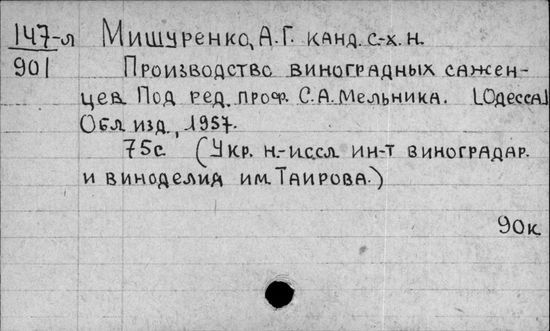 147-л Мишуренко, А.Г. канд. с-х. н.
901 Производство виноградных сажен-
цев. Под ред. проф. С.А. Мельника. [Одесса]
Обл изд, 1957.
75с. (Укр. н.-иссл. ин-т виноградар.
и виноделия им. Таирова.)
90к